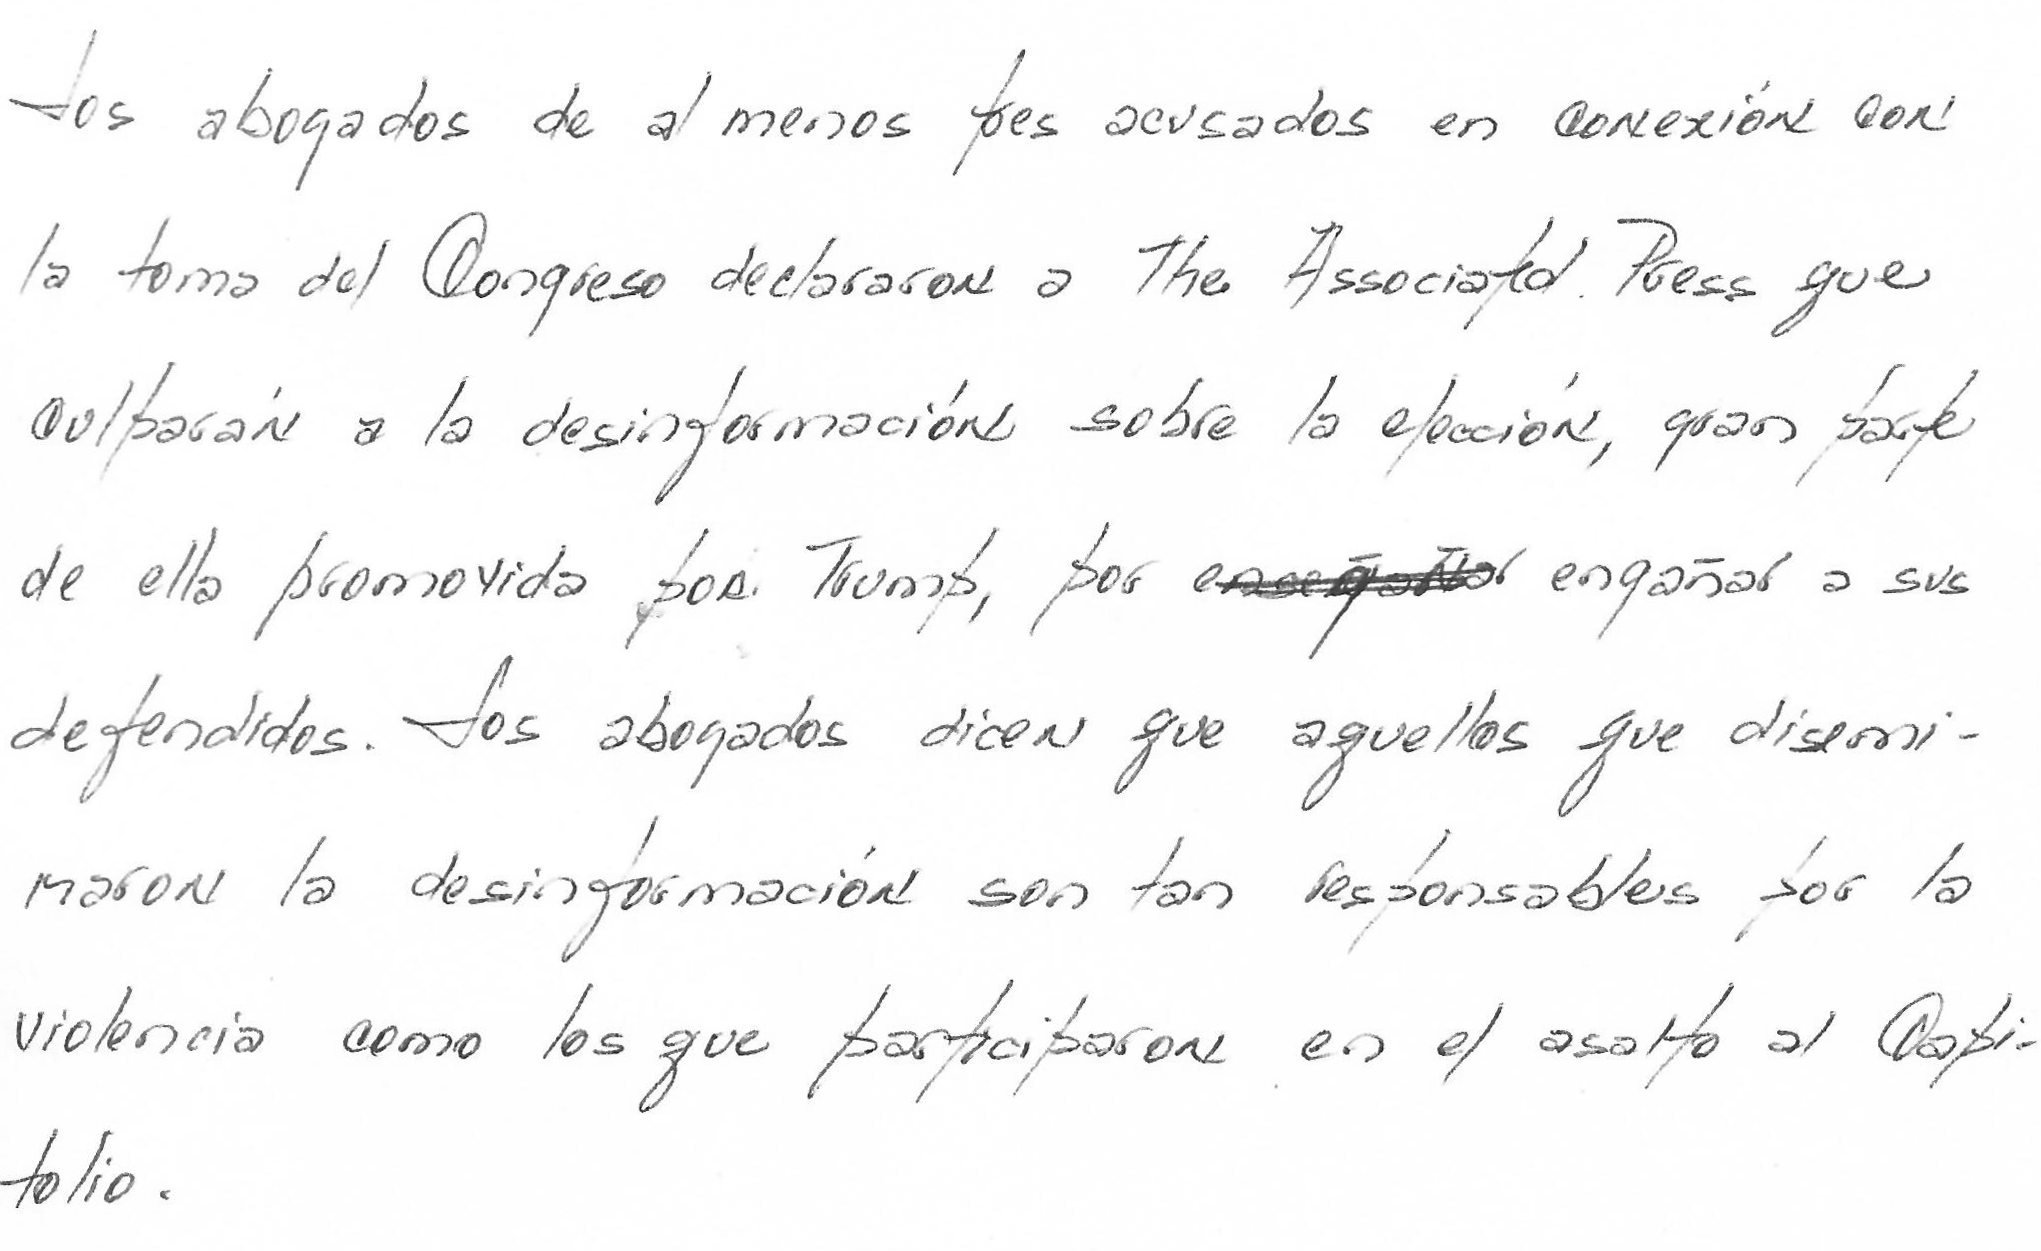 Los abogados de al menos tres acusados en conexión con
la toma del Congreso declararon a The Associated Press que
culparán a la desinformación sobre la elección, gran parte
de ella promovida por Trump, por engañar a sus
defendidos. Los abogados dicen que aquellos que disemi-
naron la desinformación son tan responsables por la
violencia como los que participaron en el asalto al Capi-
tolio.